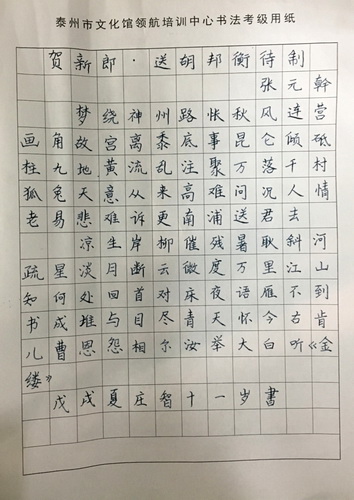 泰州市文化馆领航培训中心书法考级用纸
贺新郎·送胡邦衡待制
张元幹
梦绕神州路怅秋风连营
画角故宫离黍底事昆仑倾砥
柱九地黄流乱注聚万落千村
狐兔天意从来高难问况人情
老易悲难诉更南浦送君去
凉生岸柳催残暑耿斜河
疏星淡月断云微度万里江山
知何处回首对床夜语雁不到
书成堆与目尽青天怀今古肯
儿曹恩怨相尔汝举大白听《金
缕》
戊戌夏庄智十一岁书